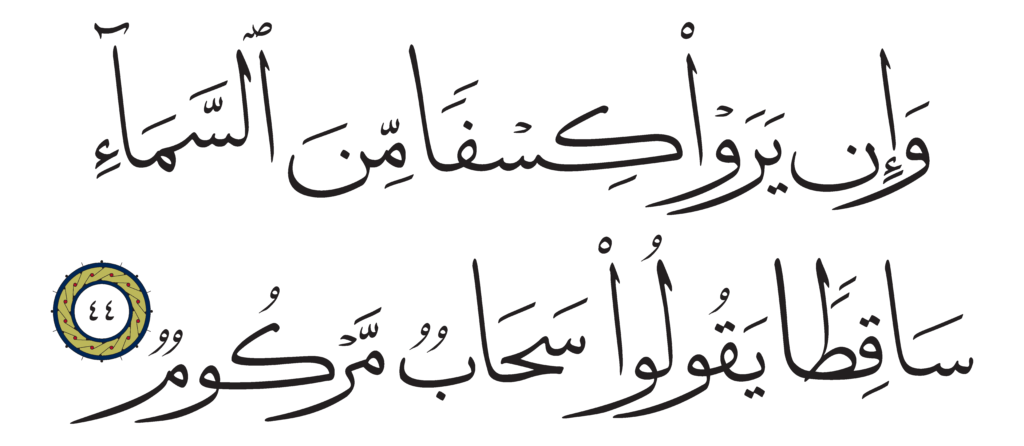 وَإِن يَرَوْا۟ كِسْفًا مِّنَ ٱلسَّمَآءِ
سَاقِطًا يَقُولُوا۟ سَحَابٌ مَّرْكُومٌ ٤٤